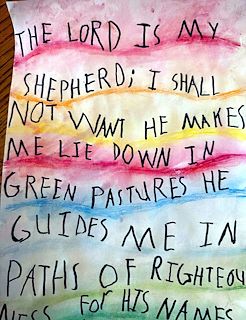 THE LORD IS MY
SHEPHERD; I SHALL
NOT WANT HE MAKES
ME LIE DOWN IN
GREEN PASTURES HE
GUIDES ME IN
PATHS OF RIGHTEOU
NESS FOR HIS NAMES